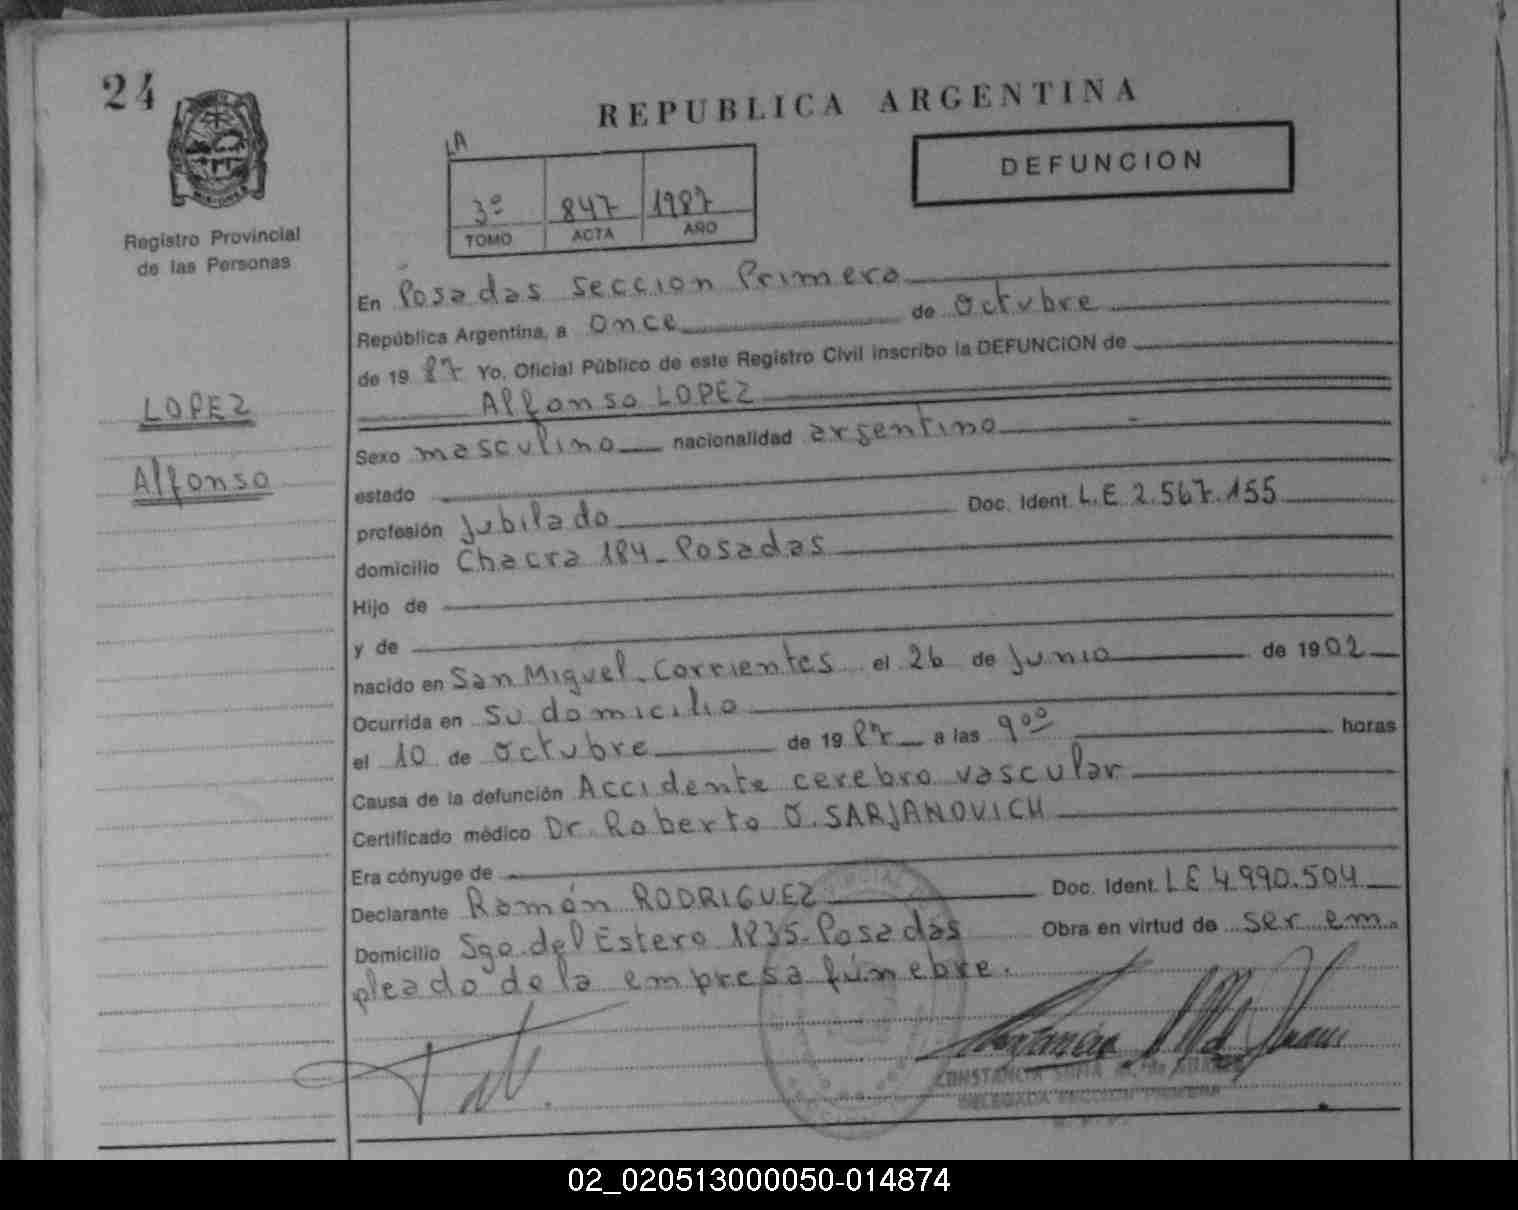 24
REPUBLICA ARGENTINA
LA
DEFUNCION
3º 847 1987
TOMO ACTA AÑO
Registro Provincial
de las Personas
En Posadas Seccion Primera
República Argentina, a once de octubre
de 1987 Yo, Oficial Público de este Registro Civil inscribo la DEFUNCION de
Alfonso LOPEZ
LOPEZ
Alfonso
Sexo masculino nacionalidad argentino
estado
profesión Jubilado Doc. Ident. L.E 2.567.155
domicilio Chacra 184-Posadas
Hijo de
y de
nacido en San Miguel-Corrientes el 26 de Junio de 1902
Ocurrida en su domicilio
el 10 de octubre de 1987 a las 9⁰⁰ horas
Causa de la defunción Accidente cerebro vascular
Certificado médico Dr. Roberto O. SARJANOVICH
Era cónyuge de
Declarante Ramón RODRIGUEZ Doc. Ident. L E 4.990.504
Domicilio Sgo. del Estero 1835-Posadas Obra en virtud de ser em-
pleado de la empresa fúnebre.
CONSTANCIA SOFIA
DELEGADA SECCION PRIMERA
02_020513000050-014874